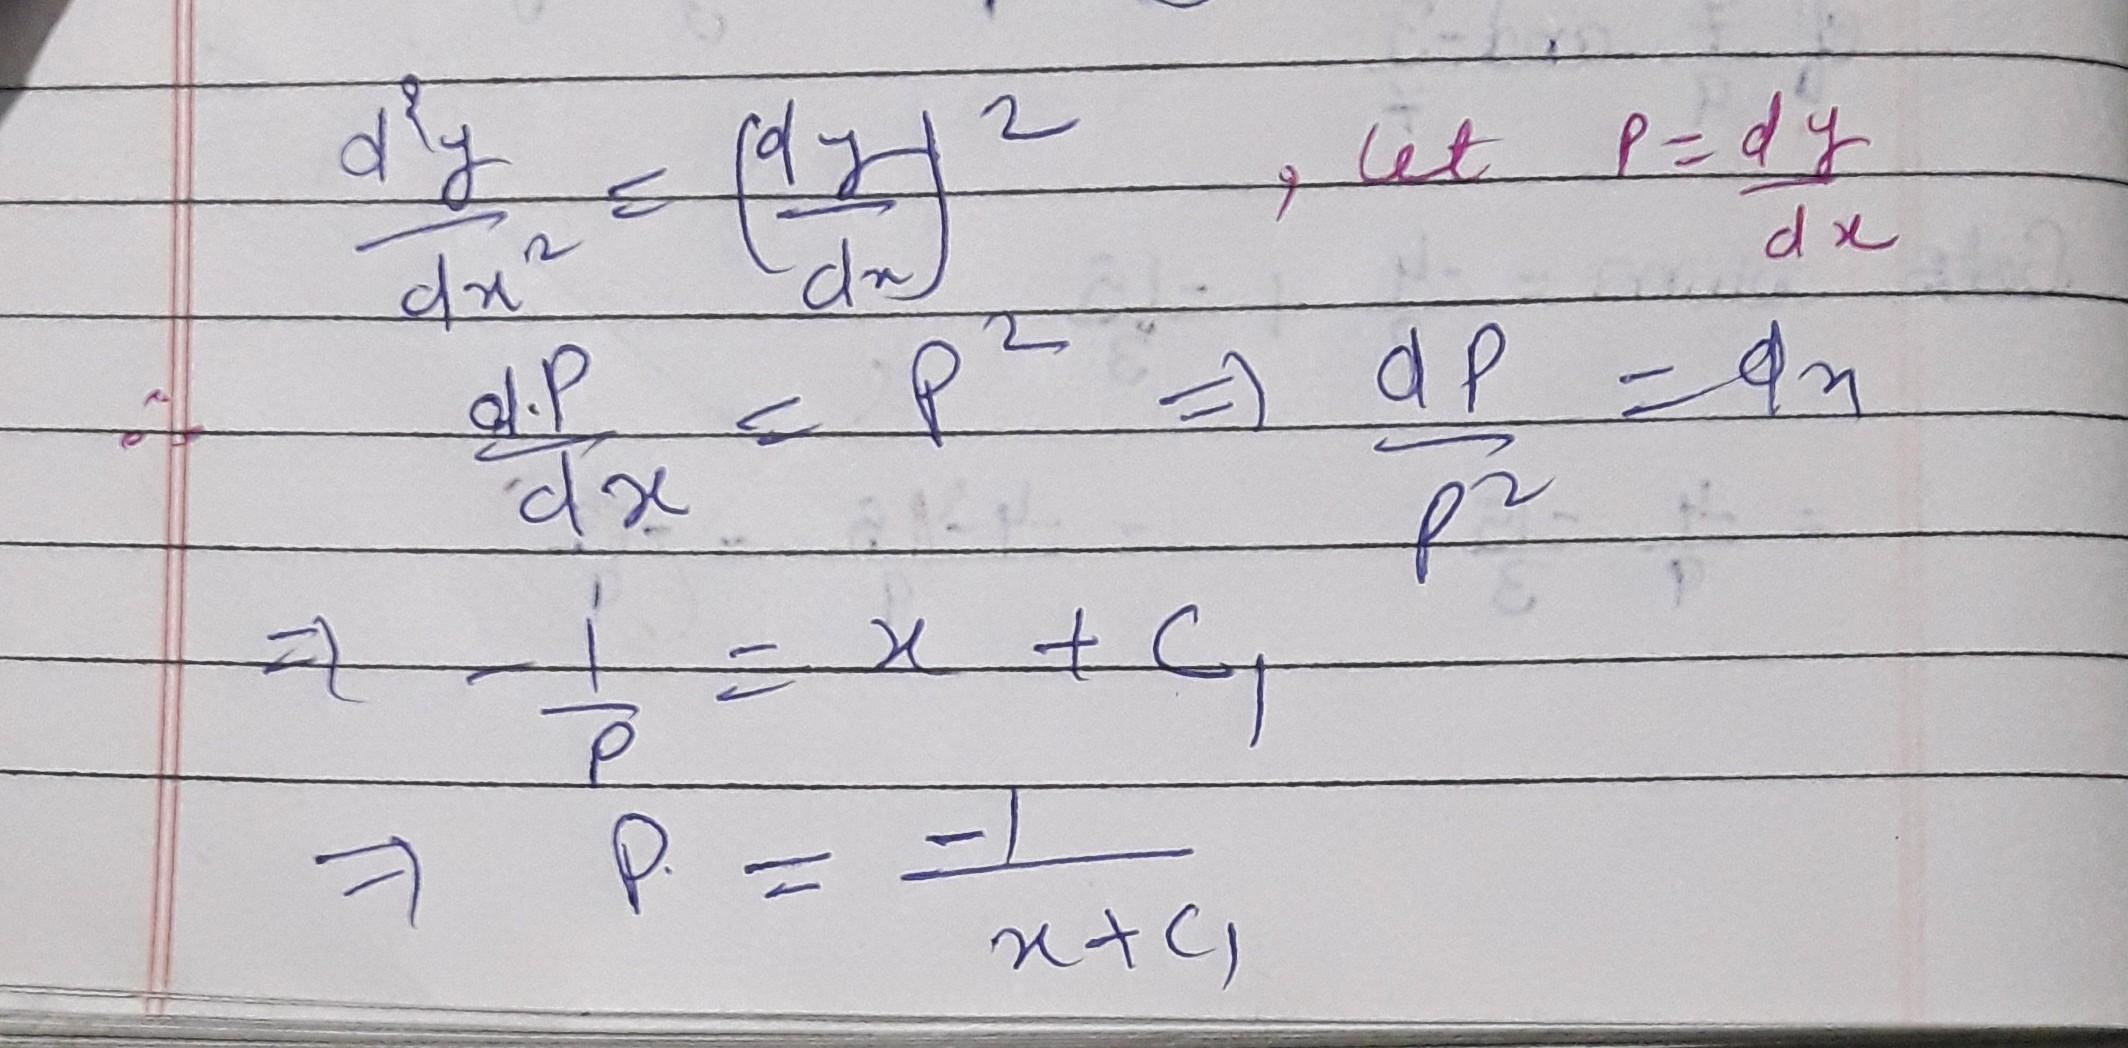 d²y/dx² = (dy/dx)² , let P = dy/dx
∴ dP/dx = P² ⇒ dP/P² = dx
⇒ -1/P = x + C₁
⇒ P = -1/(x+C₁)